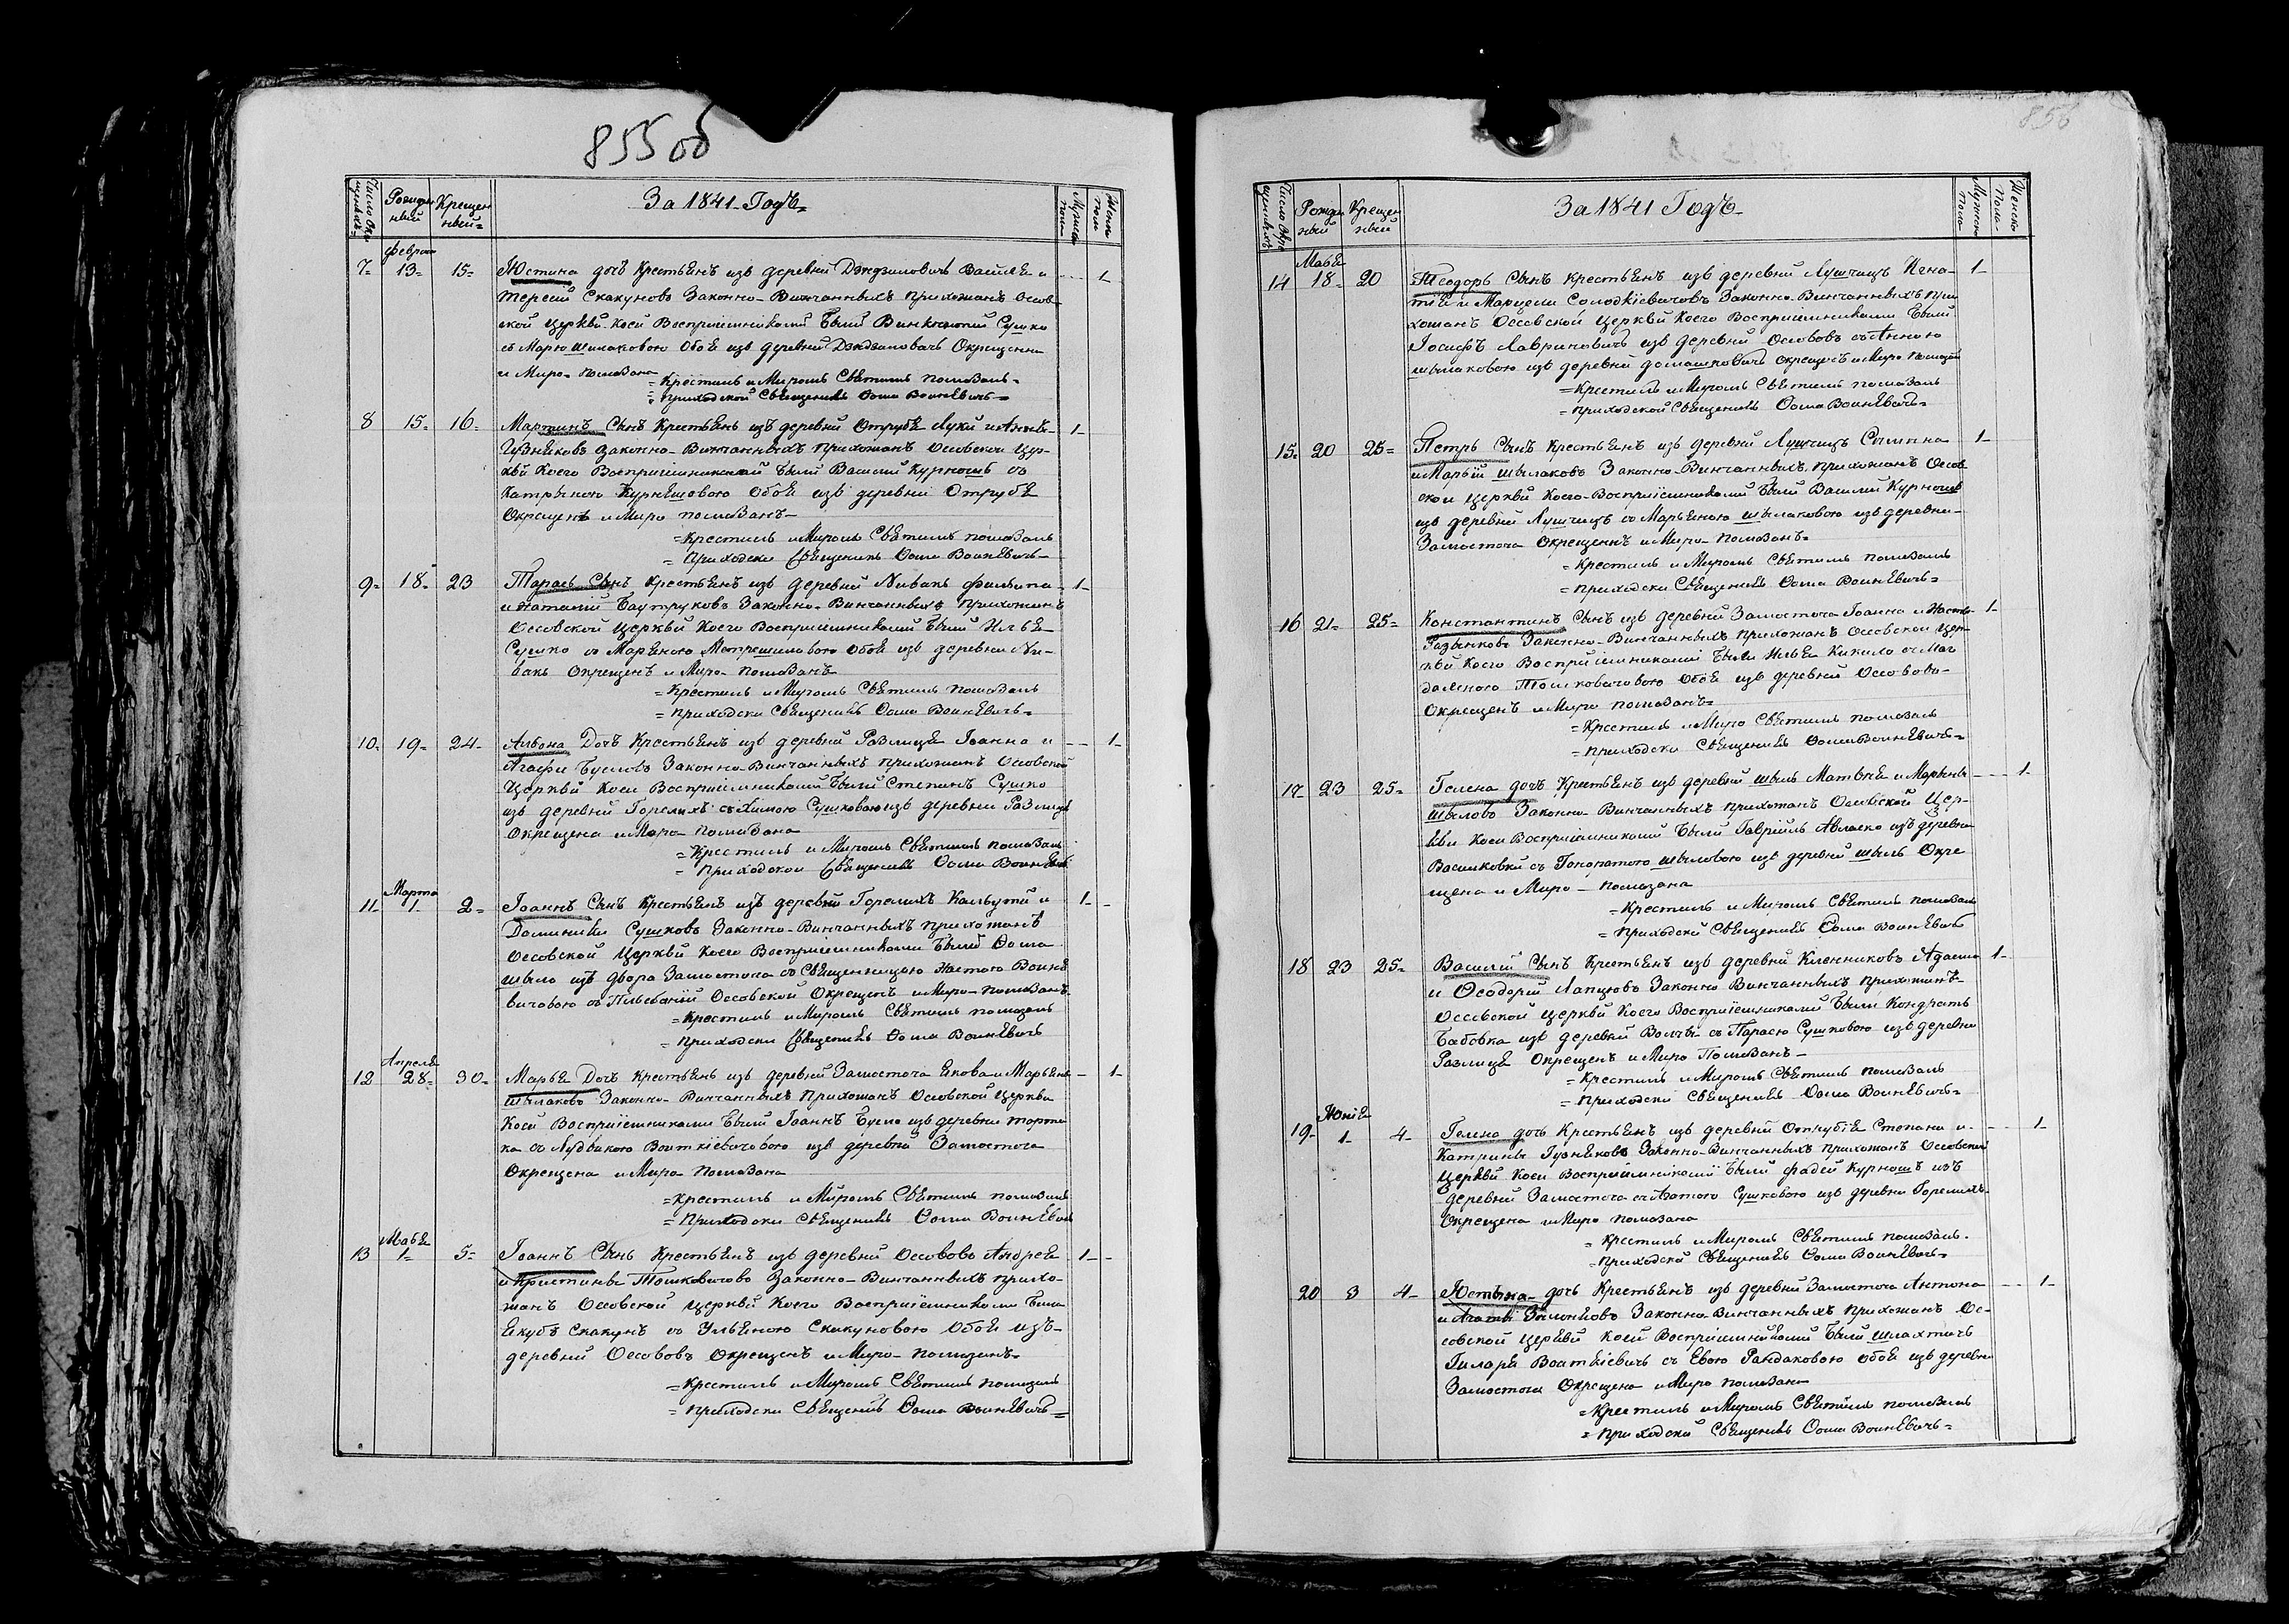 855 об
Число Окре
щенныхъ
Рожден
ный
Крещен
ный
За 1841 Годъ
Мужеска
пола
Женска
пола
Феврал
7 13 15 Юстина дочъ Крестьянъ изъ деревни Дэндзиловичъ Василея и 1
Тересіи Скакуновъ Законно-Винчанныхъ прихожанъ Осов-
ской Церкви Коей Восприемниками были Сушко
съ Марю Шылаковою Обоя изъ деревни Окрещенна
и Миро-помазана
Крестилъ и Миромъ Святымъ помазалъ
приходской Священникъ Фома Воинзевичъ
8 15 16 Мартинъ Сынъ Крестьянъ изъ деревни Отрубя Луки и Анны 1
Гузниковъ Законно-Винчанныхъ прихожанъ Осовской Цер-
кви Коего Восприемниками были Василий Курношъ со
Катрыною Курнешовою Обоя изъ деревни Отрубя
Окрещенъ и Миро помазанъ
Крестилъ и Миромъ Святымъ помазалъ
Приходски Священникъ Фома Воинзевичъ
9 18 23 Тарасъ Сынъ Крестьянъ изъ деревни Ливакъ Филипа 1
и Наталии Баутруковъ Законно-Винчанныхъ прихожанъ
Оссовской Церкви Коего Восприемниками были Илья
Сушко со Марьяною Метрешиловою Обоя изъ деревни Ли-
вакъ Окрещенъ и Миро-помазанъ
Крестилъ и Миромъ Святымъ помазалъ
приходски Священникъ Фома Воинзевичъ
10 19 24 Альбона Дочъ Крестьянъ изъ деревни Разлице Іоанна и 1
Агафи Бусловъ Законно-Винчанныхъ прихожанъ Оссовской
Церкви Коей Восприемниками были Степанъ Сушко
изъ деревни Горелихъ съ Химою Сушковою изъ деревни Разлице
Окрещена и Миро-помазана
Крестилъ и Миромъ Святымъ помазалъ
Приходской Священникъ Фома Воинзевичъ
Марта
11 1 2 Іоаннъ Сынъ Крестьянъ изъ деревни Горелихъ и 1
Доминики Сушковъ Законно-Винчанныхъ прихожанъ
Оссовской Церкви Коего Восприемниками были Фома
Шыло изъ двора Замосточа со Священницою Настою Воинзе
вичовою съ Оссовской Окрещенъ и Миро-помазанъ
Крестилъ и Миромъ Святымъ помазалъ
приходски Священникъ Фома Воинзевичъ
Апреля
12 28 30 Марья Дочъ Крестьянъ изъ деревни Замосточа Якова и Марьяны 1
Шылаковъ Законно-Винчанныхъ прихожанъ Оссовской Церкви
Коей Восприемниками были Іоаннъ Бусло изъ деревни
ка со Лудвикою Войткіевичовою изъ деревни Замосточа
Окрещена и Миро помазана
Крестилъ и Миромъ Святымъ помазалъ
Приходски Священникъ Фома Воинзевичъ
Мабя
13 1 5 Іоаннъ Сынъ Крестьянъ изъ деревни Оссововъ Андрея 1
и Кристины Томковичовъ Законно-Винчанныхъ прихо-
жанъ Оссовской Церкви Коего Восприемниками были
Якубъ Скакунъ со Ульяною Скакуновою Обоя изъ
деревни Оссововъ Окрещенъ и Миро-помазанъ
Крестилъ и Миромъ Святымъ помазалъ
приходски Священникъ Фома Воинзевичъ
856
Число Окре
щенныхъ
Рожден
ный
Крещен
ный
За 1841 Годъ
Мужеска
пола
Женска
пола
Мабя
14 18 20 Теодоръ Сынъ Крестьянъ изъ деревни Лущицъ Игна- 1
тия и Марцели Солодкіевичовъ Законно-Винчанныхъ при
хожанъ Оссовской Церкви Коего Восприемниками были
Іосифъ Лавриновичъ изъ деревни Осововъ съ Анною
Шылаковою изъ деревни Домашковичъ Окрещенъ и Миро помазанъ
Крестилъ и Миромъ Святымъ помазалъ
приходской Священникъ Фома Воинзевичъ
15 20 25 Петръ Сынъ Крестьянъ изъ деревни Лущицъ Сымона 1
и Марьи Шылаковъ Законно-Винчанныхъ прихожанъ Оссов
ской Церкви Коего Восприемниками были Василий Курношъ
изъ деревни Лущицъ со Марьяною Шылаковою изъ деревни
Замосточа Окрещенъ и Миро-помазанъ
Крестилъ и Миромъ Святымъ помазалъ
приходски Священникъ Фома Воинзевичъ
16 21 25 Константинъ Сынъ изъ деревни Замосточа Іоанна и Насты 1
Законно-Винчанныхъ прихожанъ Оссовской Цер
кви Коего Восприемниками были Илья Кикило съ Маг
даленою Томковичовою Обоя изъ деревни Оссовово
Окрещенъ и Миро помазанъ
Крестилъ и Миро Святымъ помазалъ
приходски Священникъ Фома Воинзевичъ
17 23 25 Гелена дочъ Крестьянъ изъ деревни Шылъ Матвея и Марьяны 1
Шыловъ Законно-Винчанныхъ прихожанъ Оссовской Цер-
кви Коей Восприемниками были Гавріилъ Авласко изъ деревни
Васильковки съ Гоноратою Шыловою изъ деревни Шылъ Окре
щена и Миро-помазана
Крестилъ и Миромъ Святымъ помазалъ
Приходски Священникъ Фома Воинзевичъ
18 23 25 Василий Сынъ Крестьянъ изъ деревни Кленниковъ Адама 1
и Феодории Лапцювъ Законно Винчанныхъ прихожанъ
Оссовской Церкви Коего Восприемниками были Кондратъ
Бабовка изъ деревни Волчъ съ Парасю Сушковою изъ деревни
Разлице Окрещенъ и Миро Помазанъ
Крестилъ и Миромъ Святымъ помазалъ
приходски Священникъ Фома Воинзевичъ
Юнія
19 1 4 Гелена дочъ Крестьянъ изъ деревни Отрубіе Степана и 1
Катрины Гузняковъ Законно-Винчанныхъ прихожанъ Оссовской
Церкви Коей Восприемниками были Фадей Курношъ изъ
деревни Замосточа съ Агатою Сушковою изъ деревни Горелихъ
Окрещена и Миро помазана
Крестилъ и Миромъ Святымъ помазалъ
приходски Священникъ Фома Воинзевичъ
20 3 4 Юстына дочъ Крестьянъ изъ деревни Замосточа Антона 1
и Агаты Законно-Винчанныхъ прихожанъ Ос-
совской Церкви Коей Восприемниками были Шляхтичъ
Гиларя Войткіевичъ съ Евою Рандаковою Обоя изъ деревни
Замосточа Окрещена и Миро помазана
Крестилъ и Миромъ Святымъ помазалъ
приходски Священникъ Фома Воинзевичъ